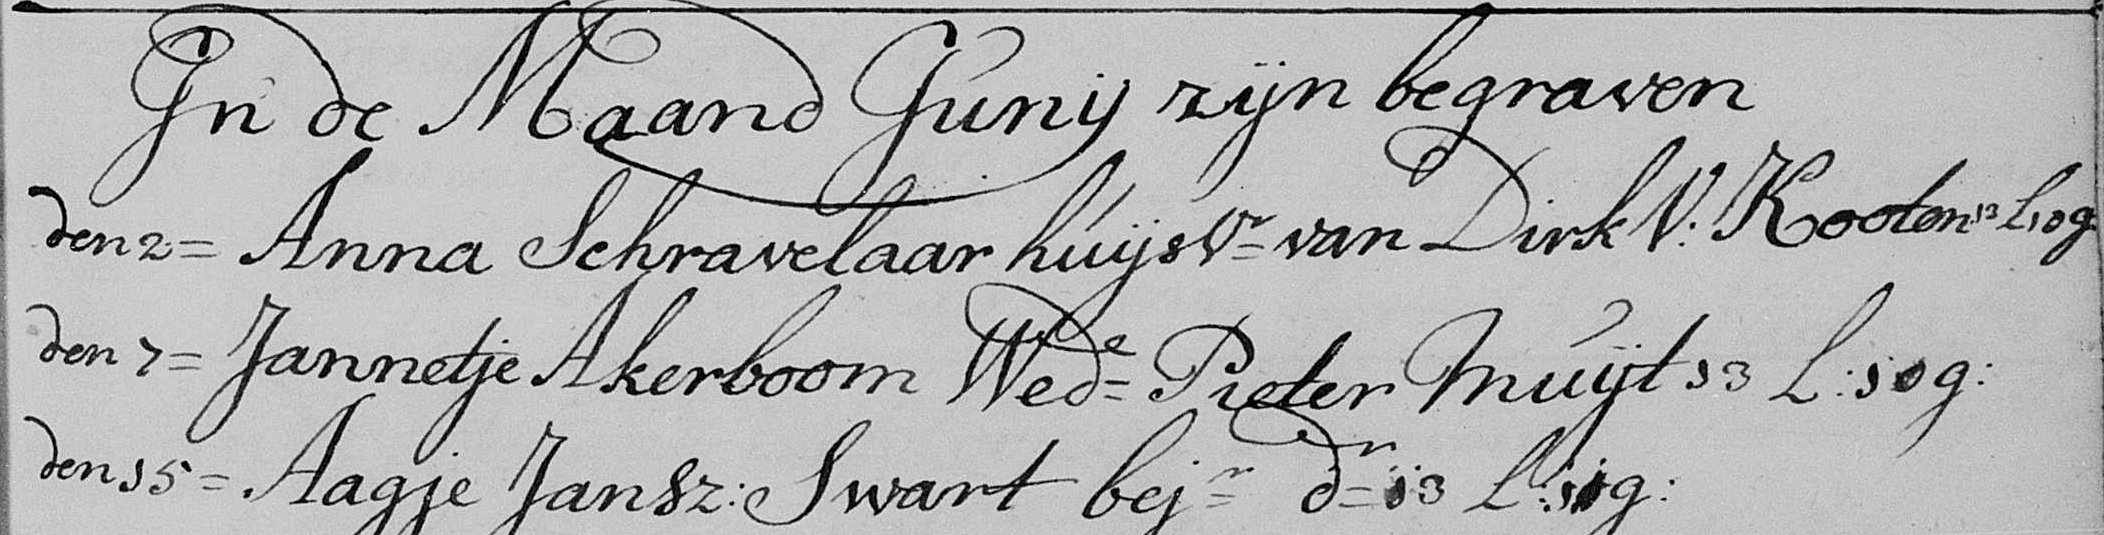 In de Maand Junij zijn begraven
den 2 = Anna Schravelaar huijsvr= van Dirk V: Kooten 13 L 10 g
den 7 = Jannetje Akerboom Wede= Pieter Muijt 13 L: 10 g:
den 15 = Aagje Jansz: Swart bejr= dr= 13 L: 11 g: